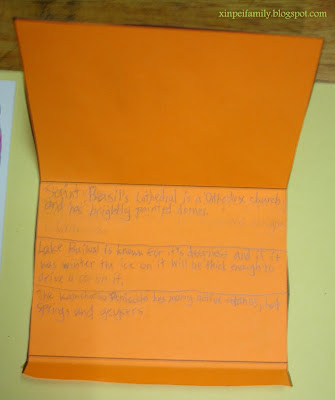 xinpeifamily.blogspot.com
Saint Basil's Cathedral is a Orthodox church
and has brightly painted domes.
Lake Baikal is known for it's deepness and if it
was winter the ice on it will be thick enough to
drive a car on it.
The Kamchatka Peninsula has many active volcanoes, hot
springs and geysers.